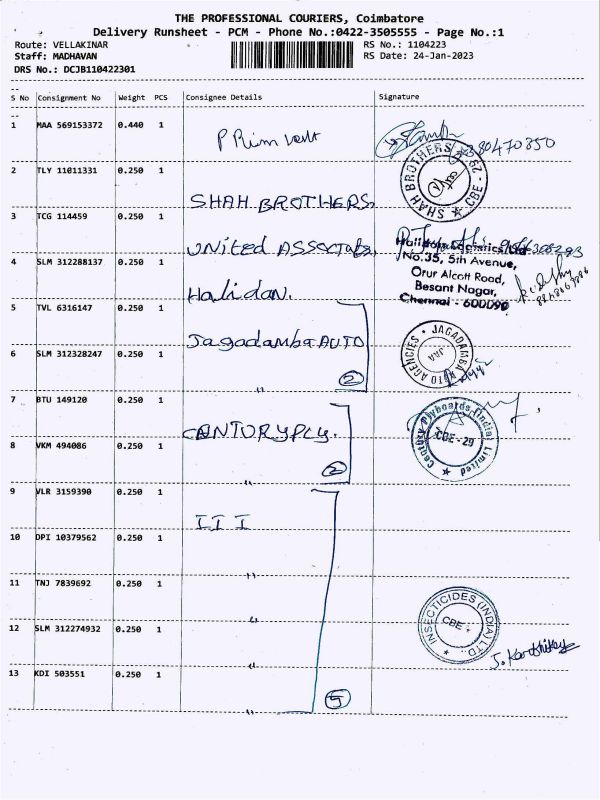 THE PROFESSIONAL COURIERS, Coimbatore
Delivery Runsheet - PCM - Phone No.:0422-3505555 - Page No.:1
Route: VELLAKINAR RS No.: 1104223
Staff: MADHAVAN RS Date: 24-Jan-2023
DRS No.: DCJB110422301
S No Consignment No Weight PCS Consignee Details Signature
1 MAA 569153372 0.440 1
2 TLY 11011331 0.250 1
SHAH BROTHERS
SHAH BROTHERS CBE - 29
3 TCG 114459 0.250 1
UNITED
Logistics Ltd
No.35, 5th Avenue,
Orur Alcott Road,
Besant Nagar,
Chennai - 600090
4 SLM 312288137 0.250 1
Halidan.
5 TVL 6316147 0.250 1
Jagadamba AUTO
JAGADAMBA AUTO AGENCIES
6 SLM 312328247 0.250 1
2
7 BTU 149120 0.250 1
CENTURYPLY.
Century Plyboards (India) Limited
CBE - 29
8 VKM 494086 0.250 1
2
9 VLR 3159390 0.250 1
III
10 DPI 10379562 0.250 1
11 TNJ 7839692 0.250 1
INSECTICIDES (INDIA) LTD.
CBE
12 SLM 312274932 0.250 1
13 KDI 503551 0.250 1
5